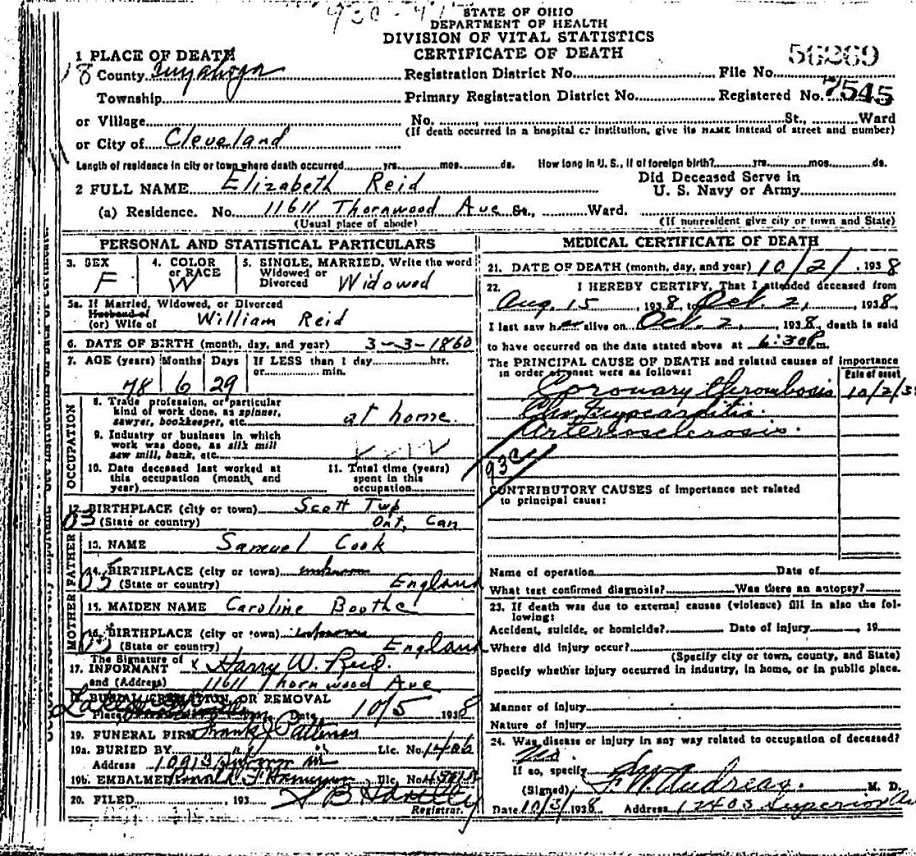 STATE OF OHIO
DEPARTMENT OF HEALTH
DIVISION OF VITAL STATISTICS
CERTIFICATE OF DEATH
1 PLACE OF DEATH
County Cuyahoga Registration District No. File No. 56269
Township Primary Registration District No. Registered No. 7545
or Village No. St., Ward
or City of Cleveland (If death occurred in a hospital or institution, give its NAME instead of street and number)
Length of residence in city or town where death occurred yrs. mos. ds. How long in U. S., if of foreign birth? yrs. mos. ds.
2 FULL NAME Elizabeth Reid Did Deceased Serve in U. S. Navy or Army
(a) Residence. No. 11611 Thornwood Ave St., Ward.
(Usual place of abode) (If nonresident give city or town and State)
PERSONAL AND STATISTICAL PARTICULARS
3. SEX F
4. COLOR or RACE W
5. SINGLE, MARRIED, Write the word Widowed or Divorced Widowed
5a. If Married, Widowed, or Divorced
Husband of
(or) Wife of William Reid
6. DATE OF BIRTH (month, day, and year) 3-3-1860
7. AGE (years) Months Days If LESS than 1 day hrs. or min.
78 6 29
OCCUPATION
8. Trade profession, or particular kind of work done, as spinner, sawyer, bookkeeper, etc. at home
9. Industry or business in which work was done, as silk mill saw mill, bank, etc.
10. Date deceased last worked at this occupation (month, and year)
11. Total time (years) spent in this occupation
12. BIRTHPLACE (city or town) Scott Twp
(State or country) Ont, Can
FATHER
13. NAME Samuel Cook
14. BIRTHPLACE (city or town) unknown
(State or country) England
MOTHER
15. MAIDEN NAME Caroline Boothe
16. BIRTHPLACE (city or town) unknown
(State or country) England
The Signature of
17. INFORMANT x Harry W. Reid
and (Address) 11611 Thornwood Ave
18. BURIAL, CREMATION, OR REMOVAL
Place Date 10/5 1938
19. FUNERAL FIRM
19a. BURIED BY Lic. No.
Address
19b. EMBALMER Lic. No.
20. FILED 193
Registrar.
MEDICAL CERTIFICATE OF DEATH
21. DATE OF DEATH (month, day, and year) 10/2/, 1938
22. I HEREBY CERTIFY, That I attended deceased from
Aug. 15 1938, to Oct. 2, 1938,
I last saw her alive on Oct. 2, 1938, death is said
to have occurred on the date stated above at 6:30 p.m.
The PRINCIPAL CAUSE OF DEATH and related causes of importance in order of onset were as follows: Date of onset
Coronary thrombosis 10/2/38
Chr. Myocarditis.
Arteriosclerosis.
93c
CONTRIBUTORY CAUSES of importance not related to principal cause:
Name of operation Date of
What test confirmed diagnosis? Was there an autopsy?
23. If death was due to external causes (violence) fill in also the following:
Accident, suicide, or homicide? Date of injury 19
Where did injury occur?
(Specify city or town, county, and State)
Specify whether injury occurred in industry, in home, or in public place.
Manner of injury
Nature of injury
24. Was disease or injury in any way related to occupation of deceased?
If so, specify
(Signed) M. D.
Date 10/3/ 1938 Address 12403 Superior Av